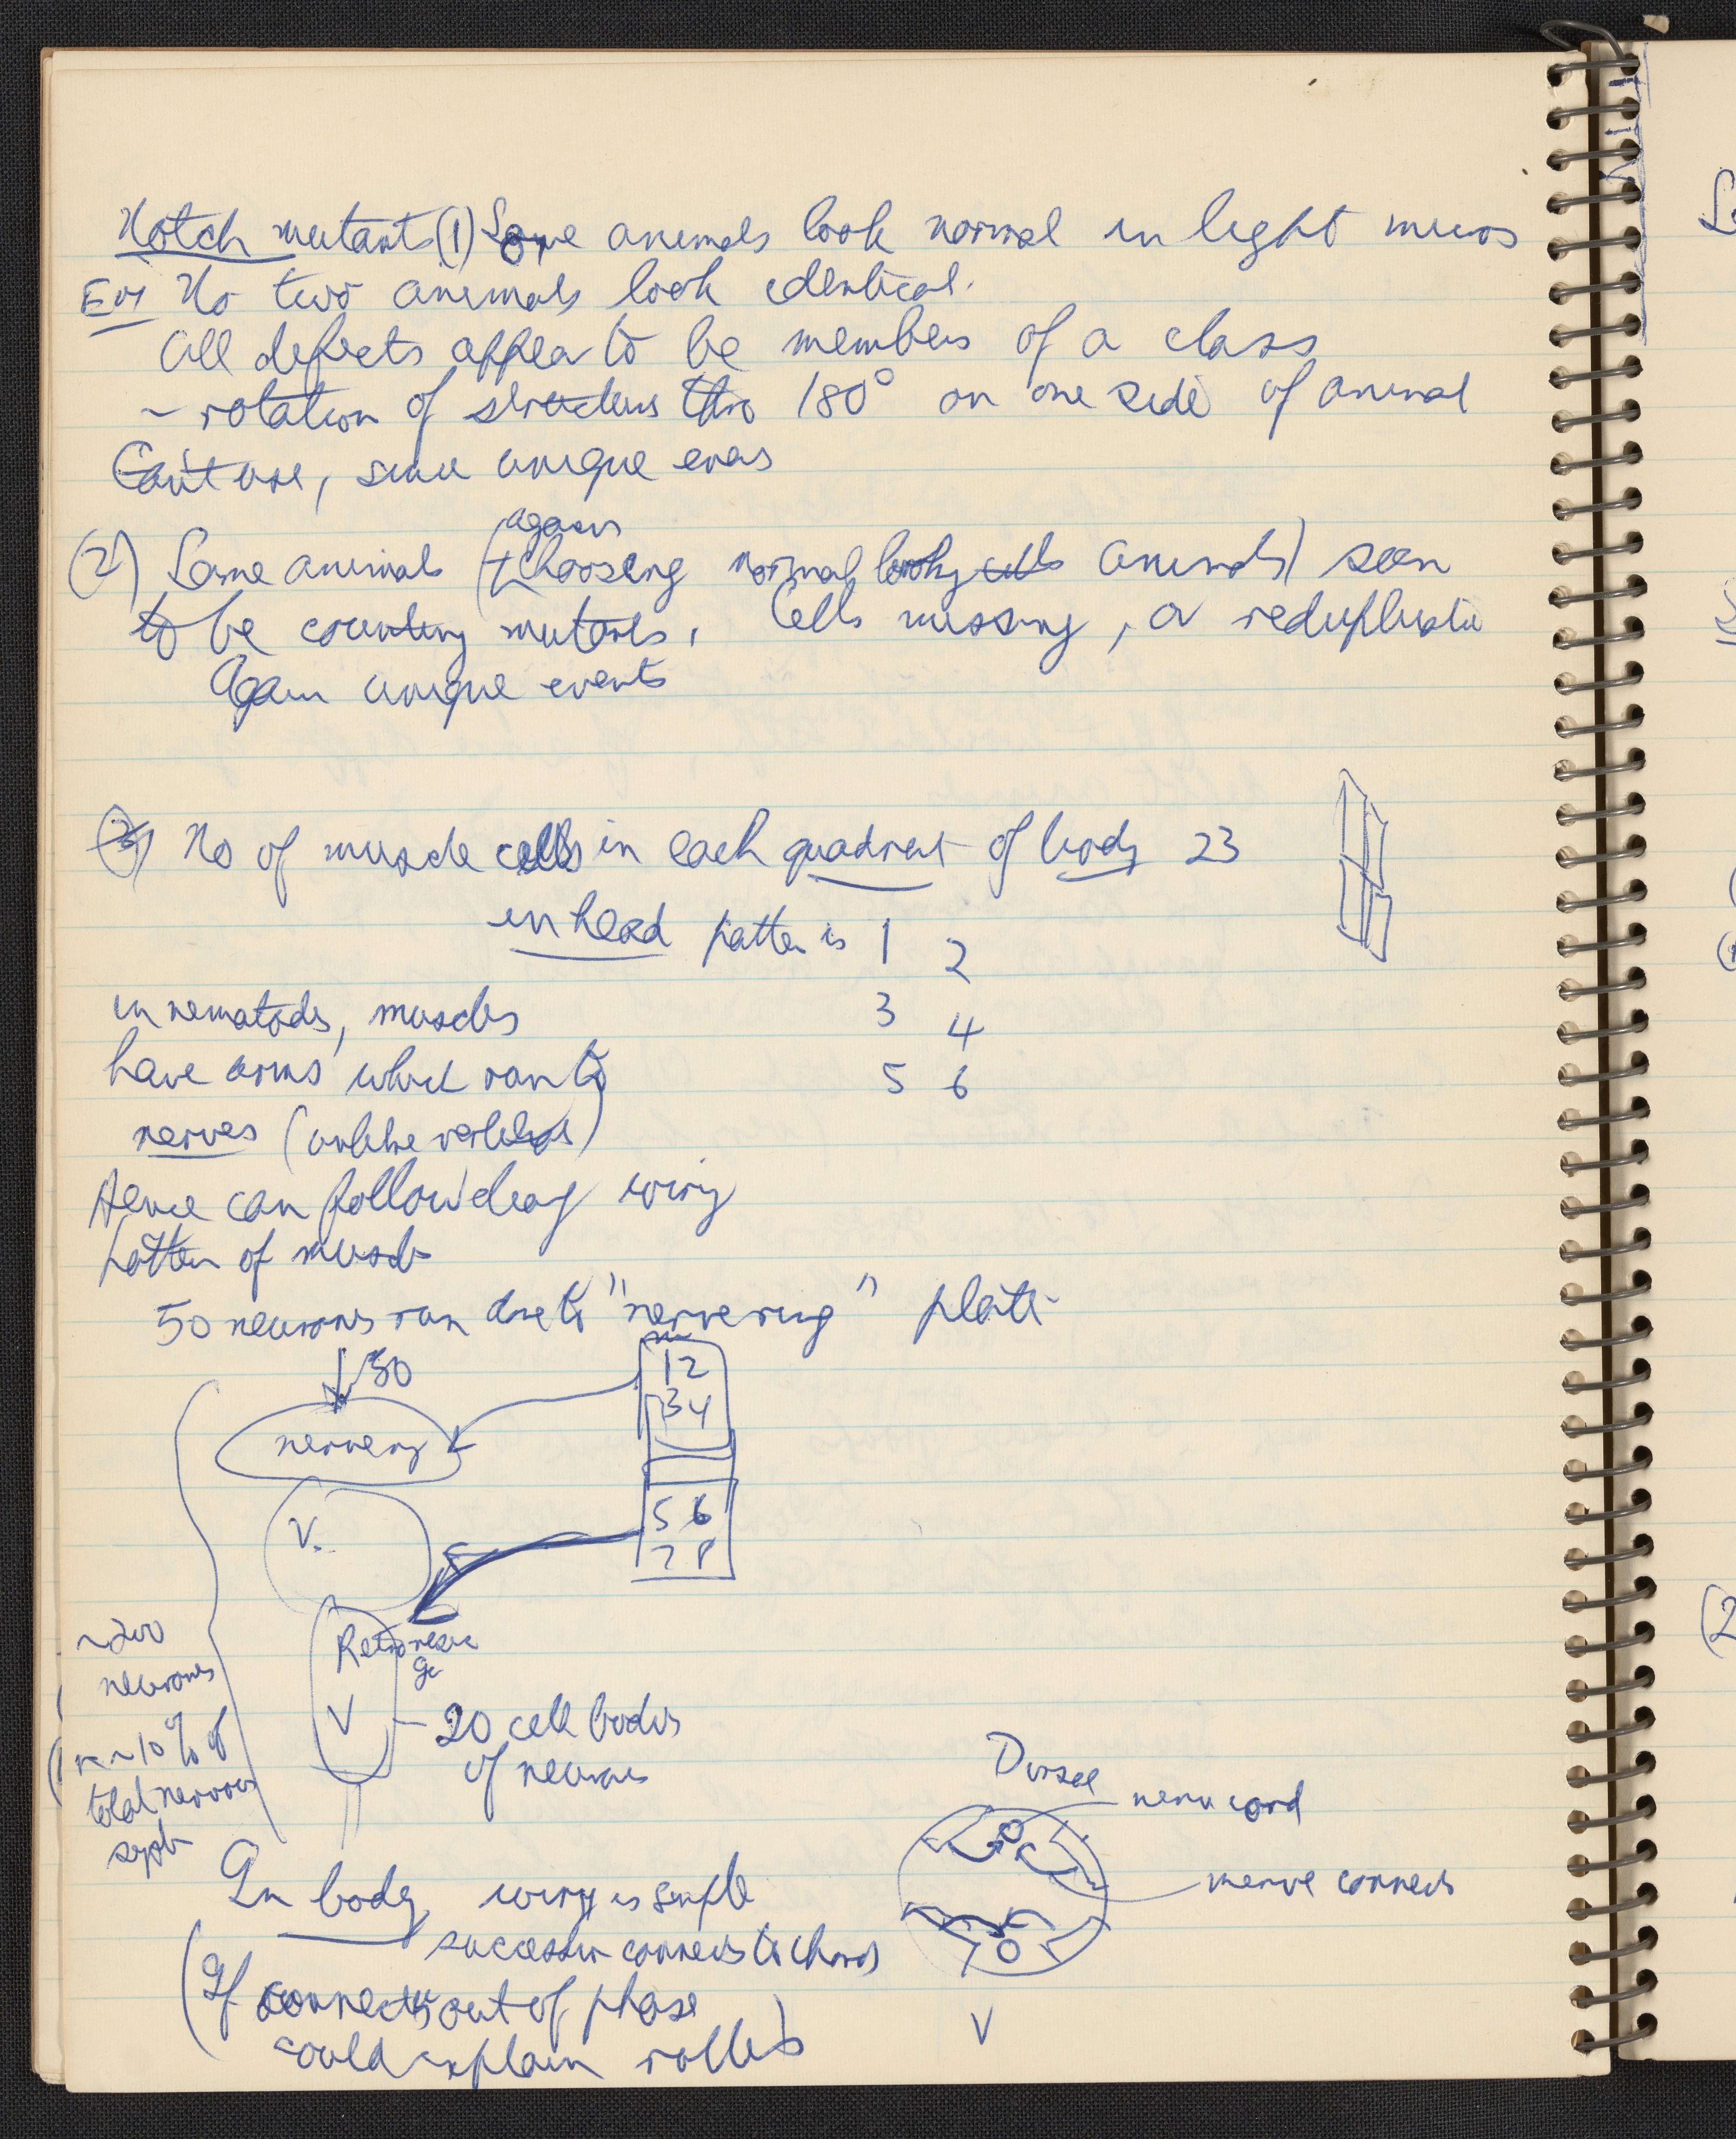 Notch mutants (1) Some animals look normal in light micros
EM No two animals look identical.
All defects appear to be members of a class
~ rotation of structures thro 180° on one side of animal
Can't use, since unique
again
(2) Some animals (choosing normal looking cells animals) seen
to be counting mutants. Cells missing, or
Again unique events
(3) No of muscle cells in each quadrant of body 23
in head pattern is 1 2
3 4
5 6
in nematodes, muscles
have arms which ran to
nerves (unlike vertebrates)
Hence can follow wiring
pattern of muscle
50 neurons run "nerve ring" plate
↓ 50
1 2
3 4
nerve ring
5 6
7 8
V.
~200
neurones
ie ~10% of
total nervous
system
V - 20 cell bodies
of neurones
Dorsal
nerve cord
nerve connects
In body wiring is simple
connects to
(If connects out of phase
could explain rollers)
V